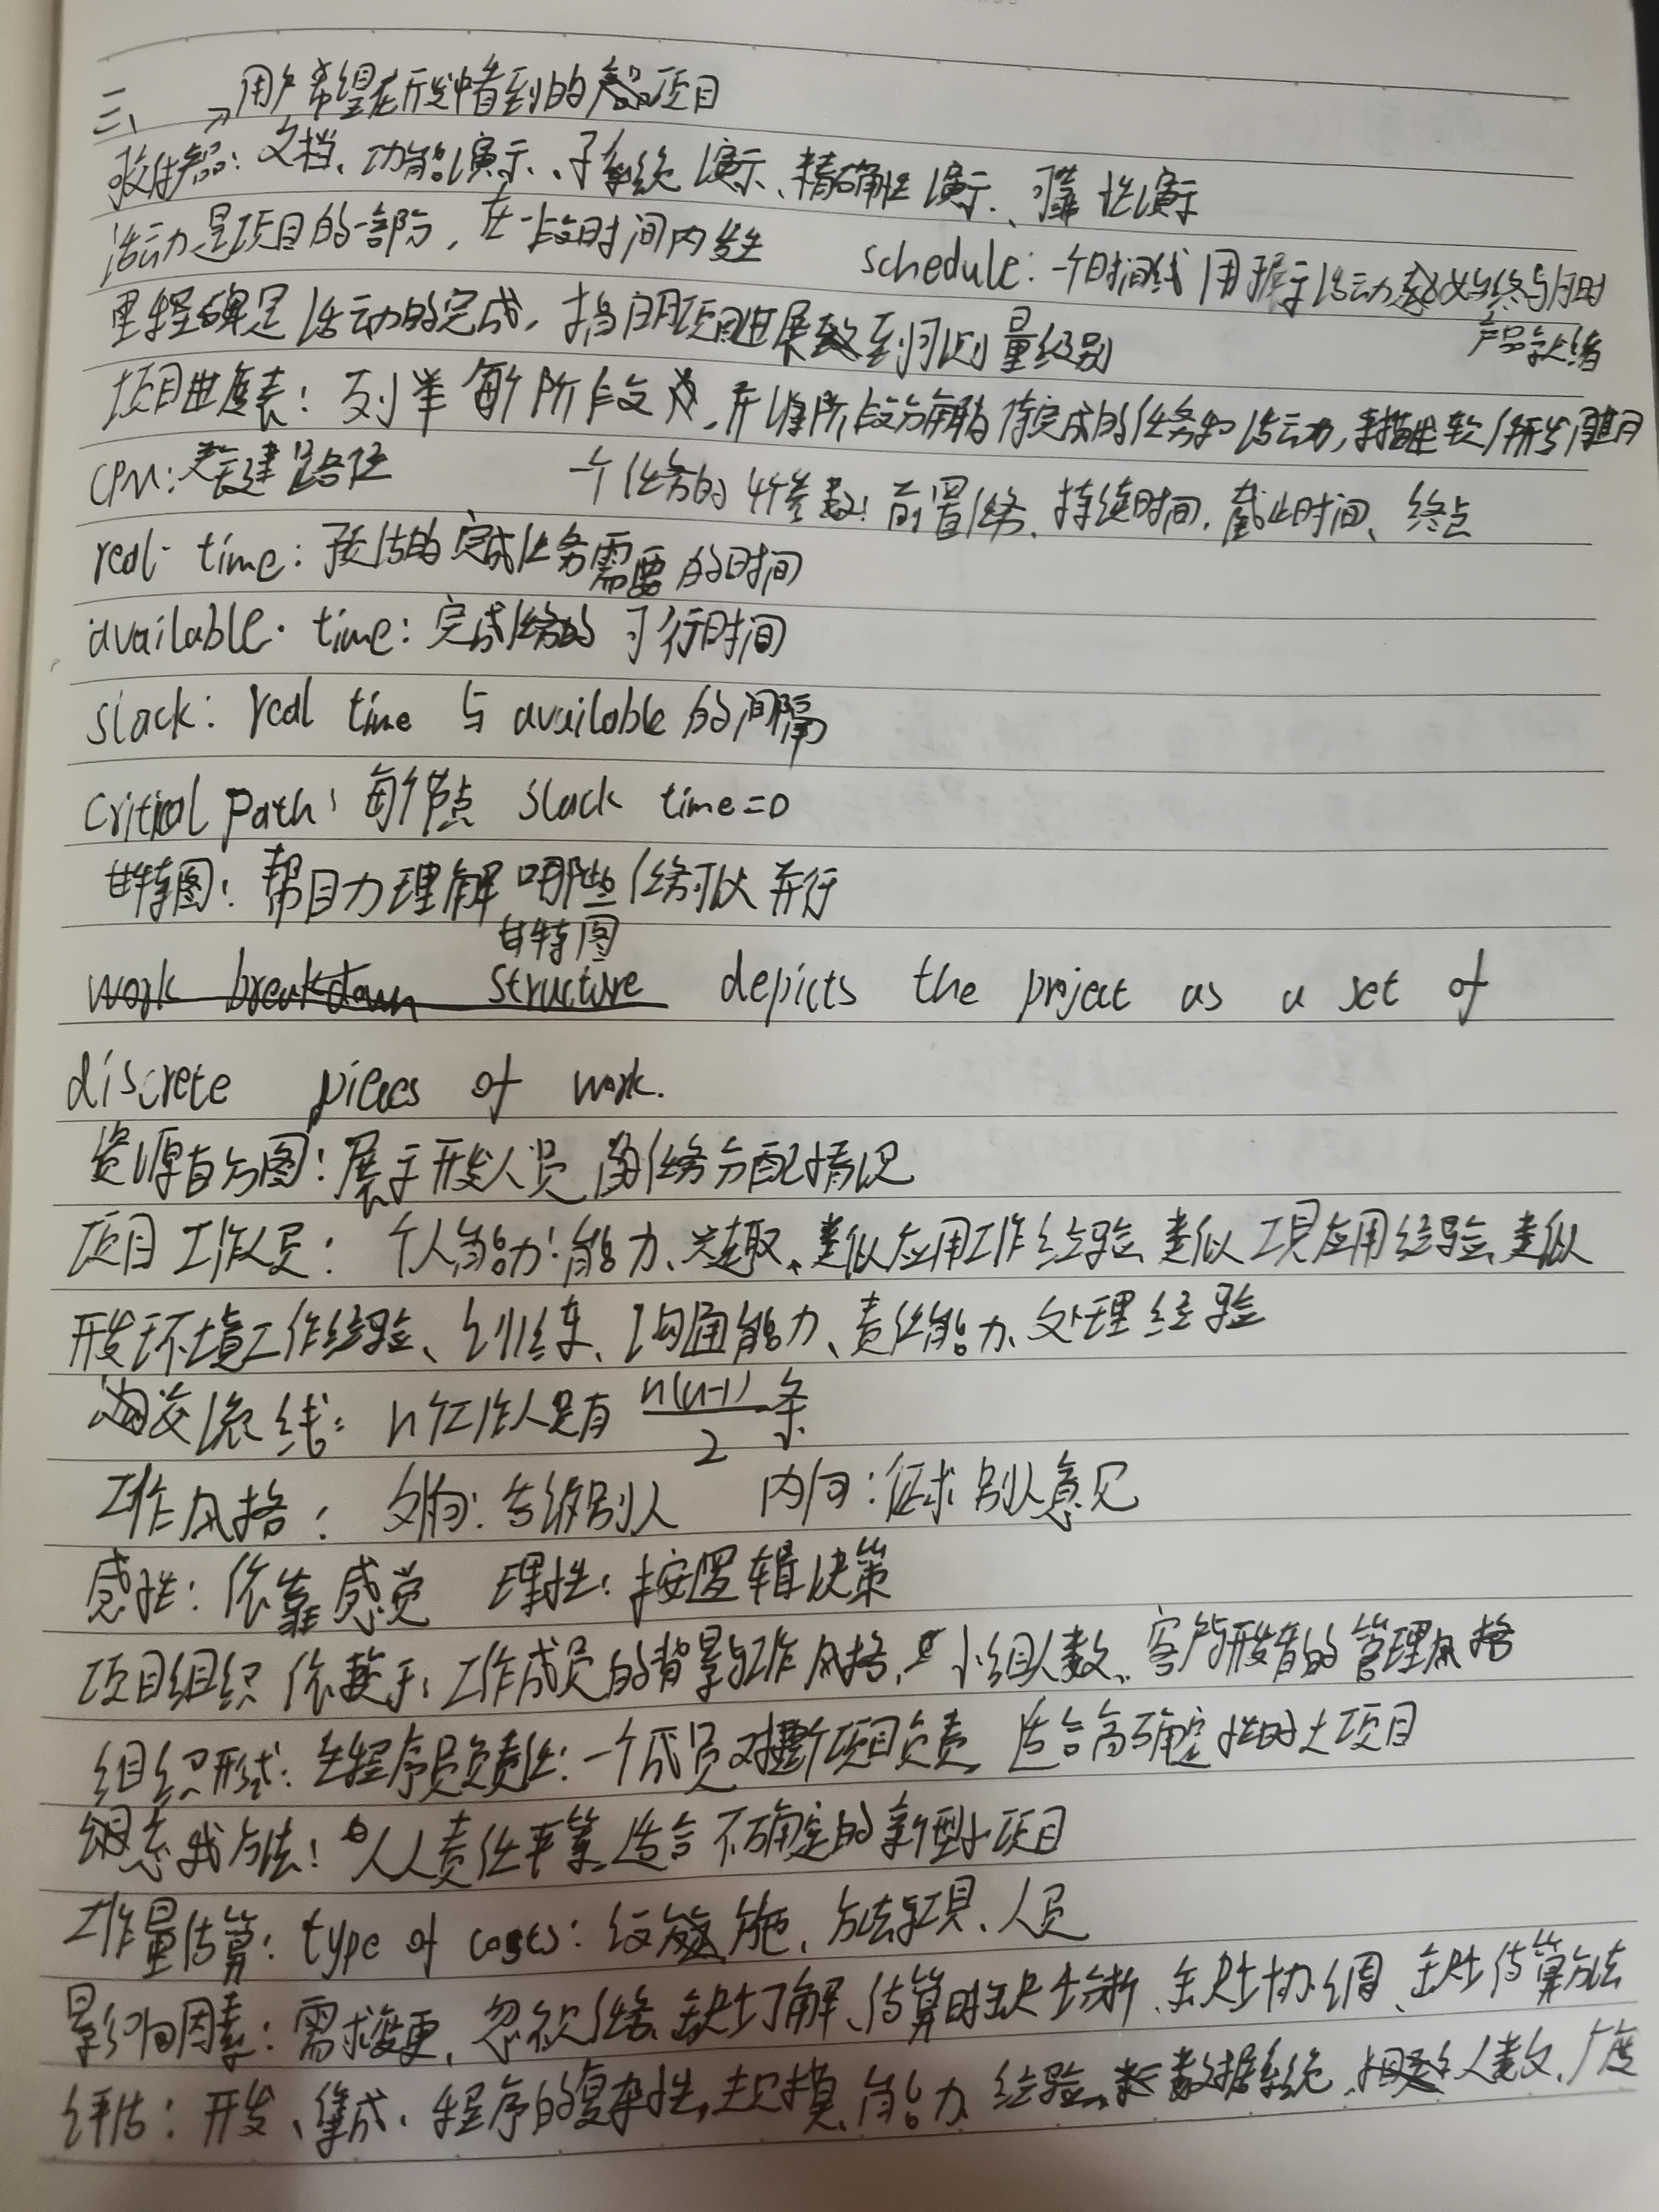 三、 →用户希望在开发中看到的项目
软件产品：文档、功能演示、子系统演示、精确性演示、可靠性演示
活动是项目的一部分，在一段时间内发生 schedule：一个时间线用于展示活动起始终与何时
产品就绪
里程碑是活动的完成，指明项目进展到可测量级别
项目进度表：列举每个阶段，并将阶段分解为待完成的任务和活动，来描述软件开发周期
CPM：关键路径 一个任务的4个参数：前置任务、持续时间、截止时间、终点
real·time：预估的完成任务需要的时间
available·time：完成任务的可行时间
slack：real time 与 available 的间隔
Critical path：每个节点 slack time=0
甘特图：帮助理解哪些任务可以并行
甘特图
work breakdown structure depicts the project as a set of
discrete pieces of work.
资源直方图：展示开发人员的任务分配情况
项目工作人员：个人能力：能力、兴趣、类似应用工作经验、类似工具应用经验、类似
开发环境工作经验、训练、沟通能力、责任能力、处理经验
交流线：n个工作人员有 n(n-1)/2 条
工作风格：外向：告诉别人 内向：征求别人意见
感性：依靠感觉 理性：按逻辑决策
项目组织依赖于：工作成员的背景与工作风格、小组人数、客户与开发者的管理风格
组织形式：主程序员负责任：一个成员对整个项目负责 适合高确定性的大项目
忘我方法：人人责任平等 适合不确定的新型小项目
工作量估算：type of costs：设施、方法与工具、人员
影响因素：需求变更、忽视任务、缺少了解、估算时缺少分析、缺少协调、缺少估算方法
评估：开发、集成、程序的复杂性、规模、能力、经验、数据系统、人数、广度